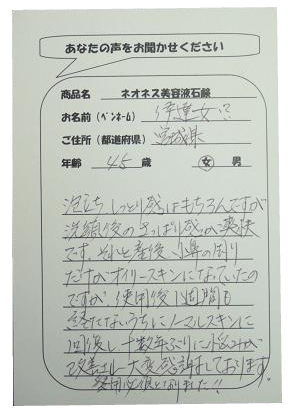 あなたの声をお聞かせください
商品名 ネオネス美容液石鹸
お名前(ペンネーム) 伊達女
ご住所(都道府県) 宮城県
年齢 45 歳 女 男
泡立ち、しっとり感はもちろんですが
洗顔後のさっぱり感が爽快
です。それと産後、小鼻の周り
だけがオイリースキンになっていたの
ですが、使用後1週間も
経たないうちにノーマルスキンに
回復し十数年ぶりに悩みが
改善され大変感謝しております。
愛用必須となりました!!